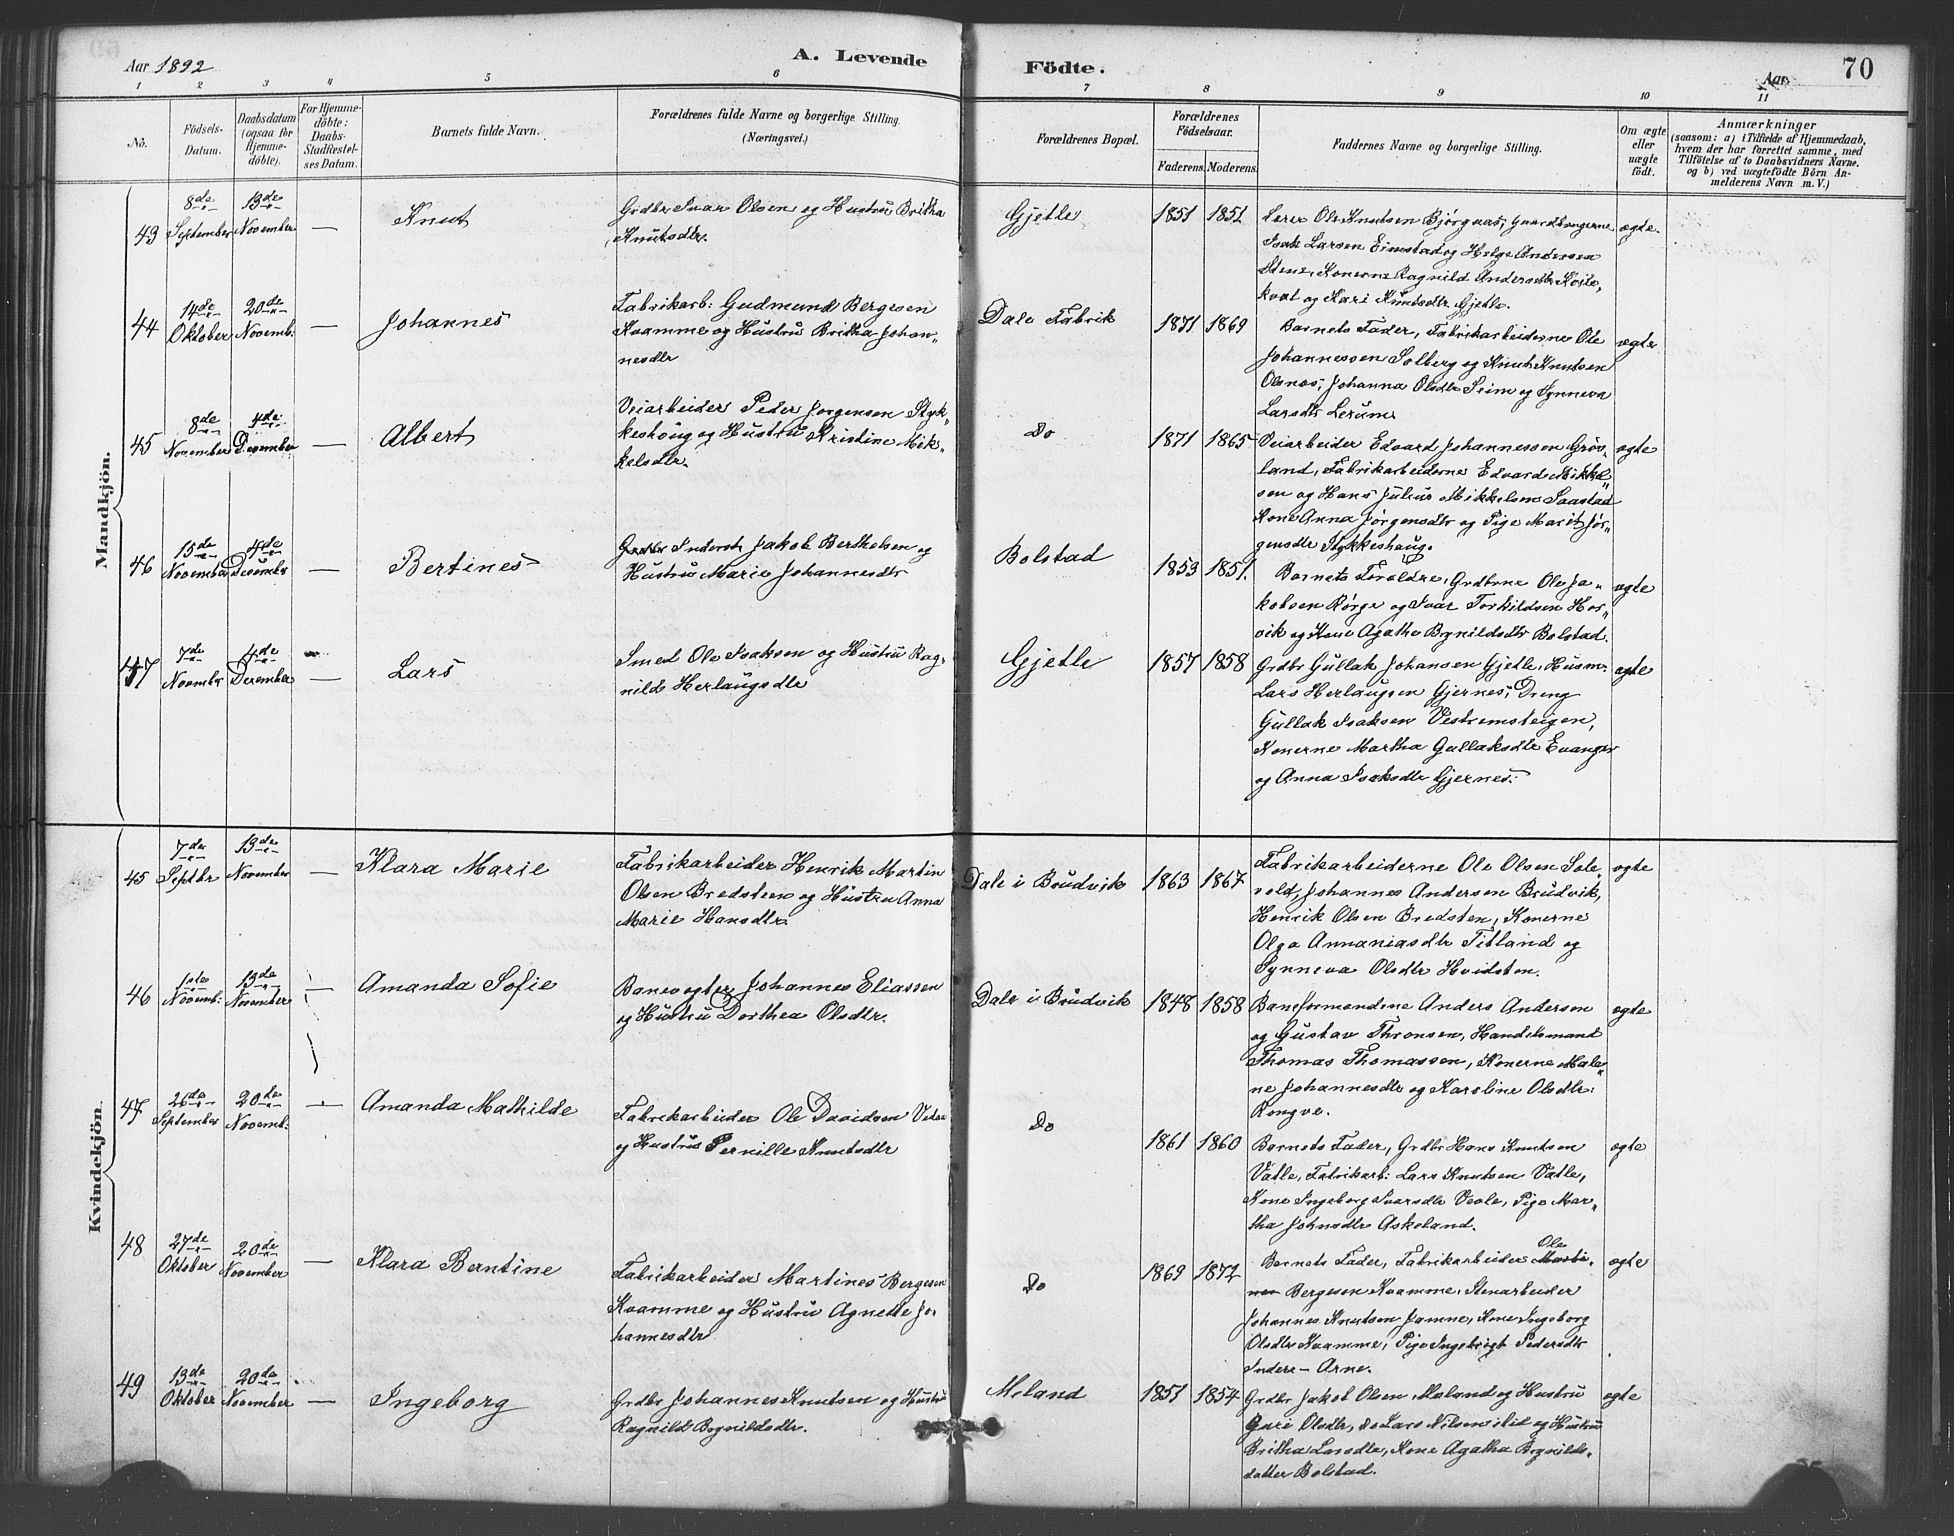 Aar 1892
A. Levende
Födte.
Aar
70
1 2 3 4 5 6 7 8 9 10 11
No.
Födsels-
Datum.
Daabsdatum
(ogsaa for
Hjemme-
döbte).
For Hjemme-
döbte:
Daabs-
Stadfæstel-
ses Datum.
Barnets fulde Navn.
Forældrenes fulde Navne og borgerlige Stilling.
(Næringsvei.)
Forældrenes Bopæl.
Forældrenes
Födselsaar.
Faderens. Moderens.
Faddernes Navne og borgerlige Stilling.
Om ægte
eller
uægte
födt.
Anmærkninger
(saasom: a) i Tilfælde af Hjemmedaab,
hvem der har forrettet samme, med
Tilföielse af to Daabsvidners Navne.
og b) ved uægtefödte Börn An-
melderens Navn m. V.)
Mandkjön.
43
8de
September
13de
November
—
Knut
Grdbr Ivar Olsen og Hustru Britha
Knutsdtr.
Gjetle
1851 1851
Lærer Ole Knutsen Bjørgaas, Gaardbrugerne
Isak Larsen Eimstad og Helge Andersen
Stene, Konerne Ragnild Andersdtr
og Kari Knutsdtr Gjetle.
ægte.
44
14de
Oktober
20de
Novemb:
—
Johannes
Fabrikarb: Gudmund Bergesen
Kvamme og Hustru Britha Johan„
nesdtr
Dale Fabrik
1871 1869
Barnets Fader, Fabrikarbeiderne Ole
Johannessen Solberg og Knut Knutsen
Olsnes, Johanna Olsdtr Seim og Synneva
Larsdtr Lerum
ægte
45
8de
November
4de
December
—
Albert
Veiarbeider Peder Jørgensen Styk„
keshoug og Hustru Kristine Mik„
kelsdtr.
Do
1871 1865
Veiarbeider Edvard Johannessen Grøv„
land, Fabrikarbeiderne Edvard Mikkel„
sen og Hans Julius Mikkelsen Saastad
Kone Anna Jørgensdtr og Pige Marit Jør„
gensdtr Stykkeshaug.
ægte
46
15de
November
4de
Decembr
—
Bertines
Grdbr Inderst Jakob Berthelsen og
Hustru Marie Johannesdtr
Bolstad
1853 1851.
Barnets Forældre, Grdbrne Ole Ja„
kobsen Rørge og Ivar Torkildsen Hor„
vik og Kone Agatha Brynildsdtr Bolstad.
ægte
47
7de
Novembr
4de
December
—
Lars
Smed Ole Isaksen og Hustru Rag„
nild Herlaugsdtr
Gjetle
1857 1858
Grdbr Gullak Johansen Gjetle, Husm.
Lars Herlaugsen Gjernes, Dreng
Gullak Isaksen Vestremsteigen,
Konerne Martha Gullaksdtr Evanger
og Anna Isaksdtr Gjernes.
ægte
Kvindekjön.
45
7de
Septbr
13de
November
—
Klara Marie
Fabrikarbeider Henrik Martin
Olsen Bredsteen og Hustru Anna
Marie Hansdtr
Dale i Brudvik
1863 1867
Fabrikarbeiderne Ole Olsen Sole„
vold, Johannes Andersen Brudvik,
Henrik Olsen Bredsten, Konerne
Olga Annaniasdtr Titland og
Synneva Olsdtr Hvidsten.
ægte
46
1ste
Novemb:
13de
November
—
Amanda Sofie
Banevogter Johannes Eliassen
og Hustru Dorthea Olsdtr.
Dale i Brudvik
1848 1858
Baneformændene Anders Andersen
og Gustav Thronsen, Handelsmand
Thomas Thomassen, Konerne Male„
ne Johannesdtr og Karoline Olsdtr.
Rongve.
ægte
47
26de
September
20de
Novemb:
—
Amanda Mathilde
Fabrikarbeider Ole Davidsen
og Hustru Pernille Knutsdtr
Do
1861 1860
Barnets Fader, Grdbr Hans Knutsen
Vatle, Fabrikarb: Lars Knutsen Vatle,
Kone Ingeborg Ivarsdtr Veole, Pige Mar„
tha Johnsdtr Askeland.
ægte
48
27de
Oktober
20de
November
—
Klara Berntine
Fabrikarbeider Martines Bergesen
Kvamme og Hustru Agnette Jo„
hannesdtr
Do
1869 1872
Ole
Barnets Fader, Fabrikarbeider Marti„
nes Bergesen Kvamme, Stenarbeider
Johannes Knutsen Jamne, Kone Ingeborg
Olsdtr Kvamme, Pige Ingebrigt Pedersdtr
Indre-Arne.
ægte
49
13de
Oktober
20de
November
—
Ingeborg
Grdbr Johannes Knutsen og Hustru
Ragnild Brynildsdtr.
Meland
1851 1854
Grdbr Jakob Olsen Mæland og Hustru
Guri Olsdtr, do Lars Nilsen ibid og Hustru
Britha Larsdtr, Kone Agatha Brynilds„
datter Bolstad.
ægte